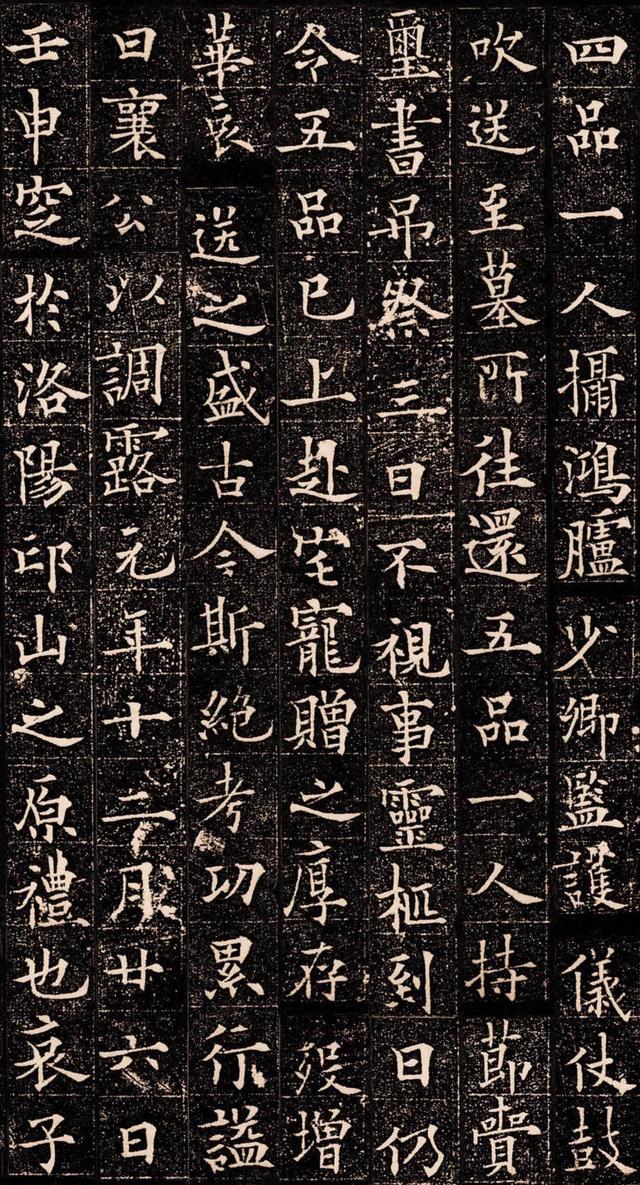 四品一人攝鴻臚少卿監護儀仗鼓
吹送至墓所往還五品一人持節賫
璽書弔祭三日不視事靈柩到日仍
令五品已上赴宅寵贈之厚存歿增
華哀送之盛古今斯絕考功累行謚
曰襄公以調露元年十二月廿六日
壬申窆於洛陽邙山之原禮也哀子